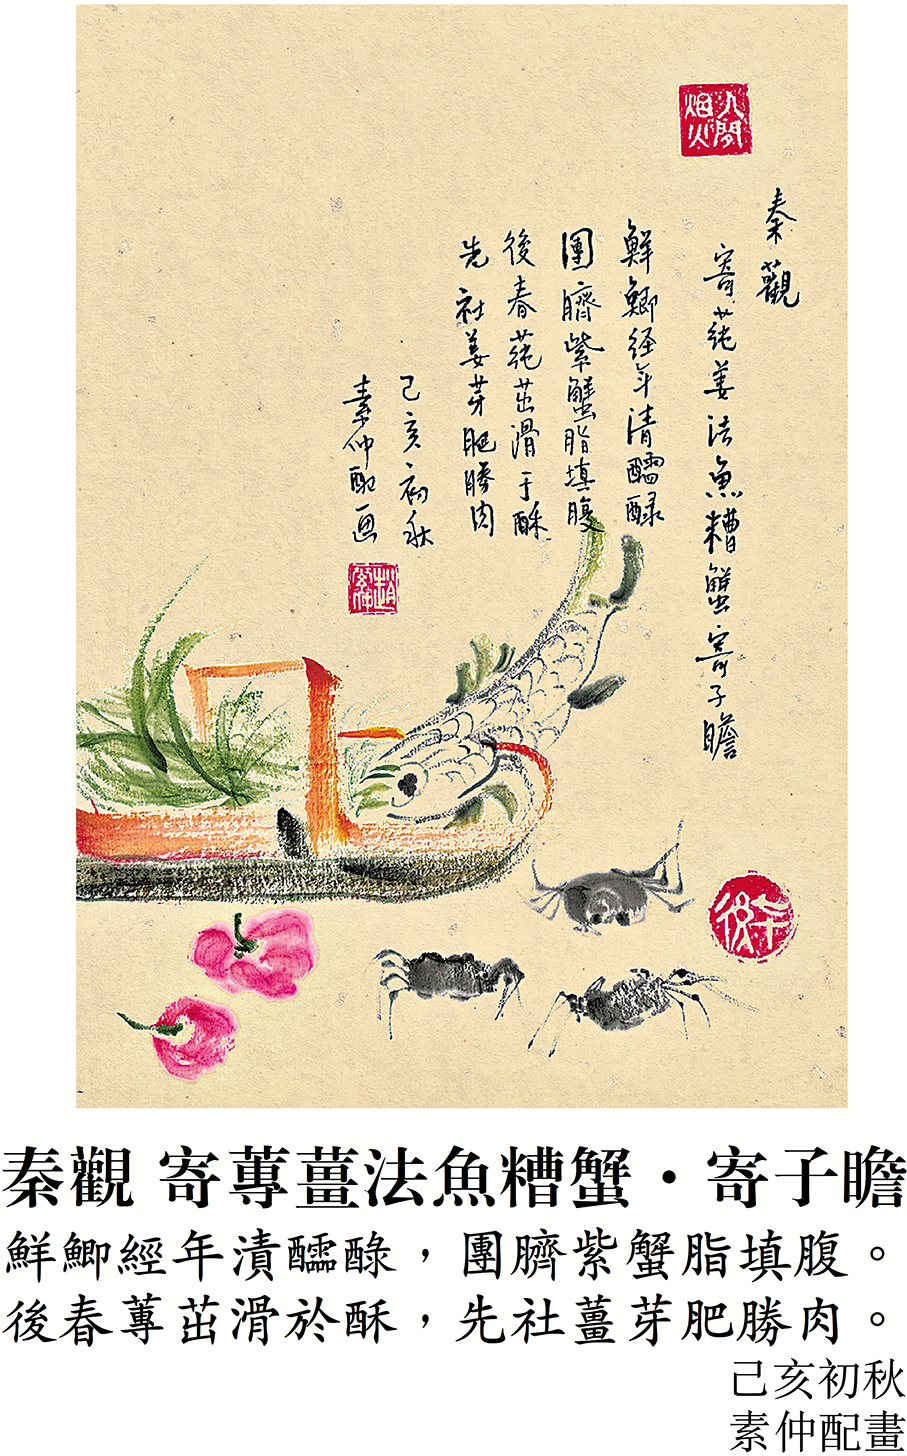 人間
烟火
秦觀
寄莼姜法魚糟蟹寄子瞻
鮮鯽经年清醹醁
團臍紫蟹脂填腹
後春莼茁滑于酥
先社姜芽肥勝肉
己亥初秋
素仲配画
秦觀 寄蓴薑法魚糟蟹・寄子瞻
鮮鯽經年漬醹醁，團臍紫蟹脂填腹。
後春蓴茁滑於酥，先社薑芽肥勝肉。
己亥初秋
素仲配畫